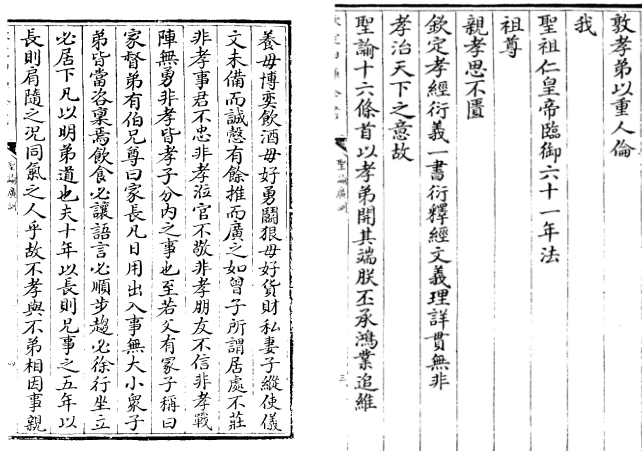 敦孝弟以重人倫
我
聖祖仁皇帝臨御六十一年法
祖尊
親孝思不匱
欽定孝經衍義一書衍釋經文義理詳貫無非
孝治天下之意故
聖諭十六條首以孝弟開其端朕丕承鴻業追維
養毋博奕飲酒毋好勇鬭狠毋好貨財私妻子縱使儀
文未備而誠慤有餘推而廣之如曾子所謂居處不莊
非孝事君不忠非孝涖官不敬非孝朋友不信非孝戰
陣無勇非孝皆孝子分內之事也至若父有冢子稱曰
家督弟有伯兄尊曰家長凡日用出入事無大小衆子
弟皆當咨稟焉飲食必讓語言必順步趨必徐行坐立
必居下凡以明弟道也夫十年以長則兄事之五年以
長則肩隨之况同氣之人乎故不孝與不弟相因事親
聖諭廣訓